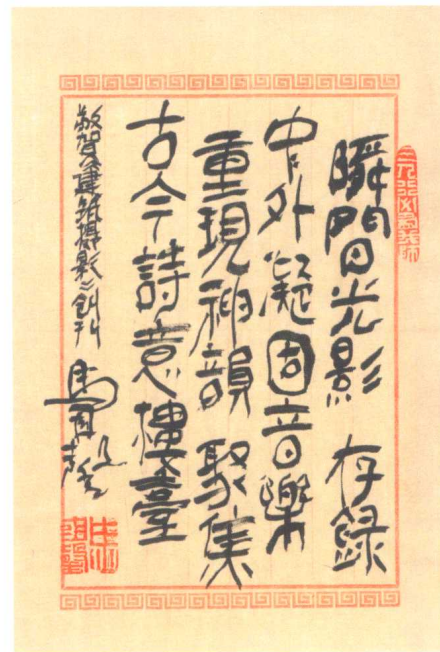 瞬間光影 存録
中外凝固音樂
重現神韻 聚集
古今詩意樓臺
敬賀《建築攝影》創刊